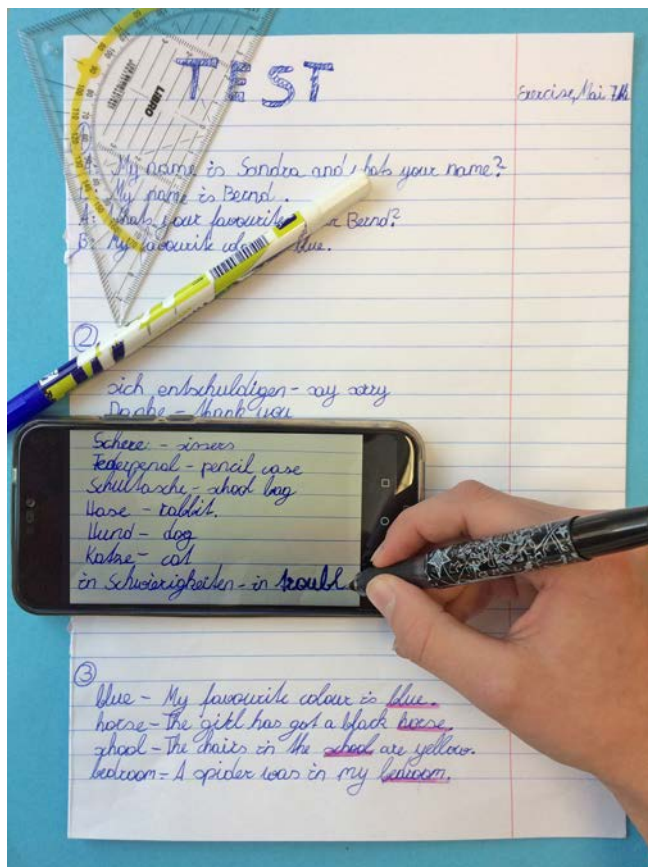 LIBRO
TEST
Exercise, Mai
①
A: My name is Sandra and hats your name?
My name is Bernd.
A: Whats your favourite Bernd?
B: My favourite blue.
②
sich entschuldigen - say sorry
Danke - thank you
Schere - sissers
Federpenal - pencil case
Schultasche - school bag
Hase - rabbit.
Hund - dog
Katze - cat
in Schwierigkeiten - in troubl
③
blue - My favourite colour is blue.
horse - The girl has got a black horse.
school - The chairs in the school are yellow.
bedroom - A spider was in my bedroom.